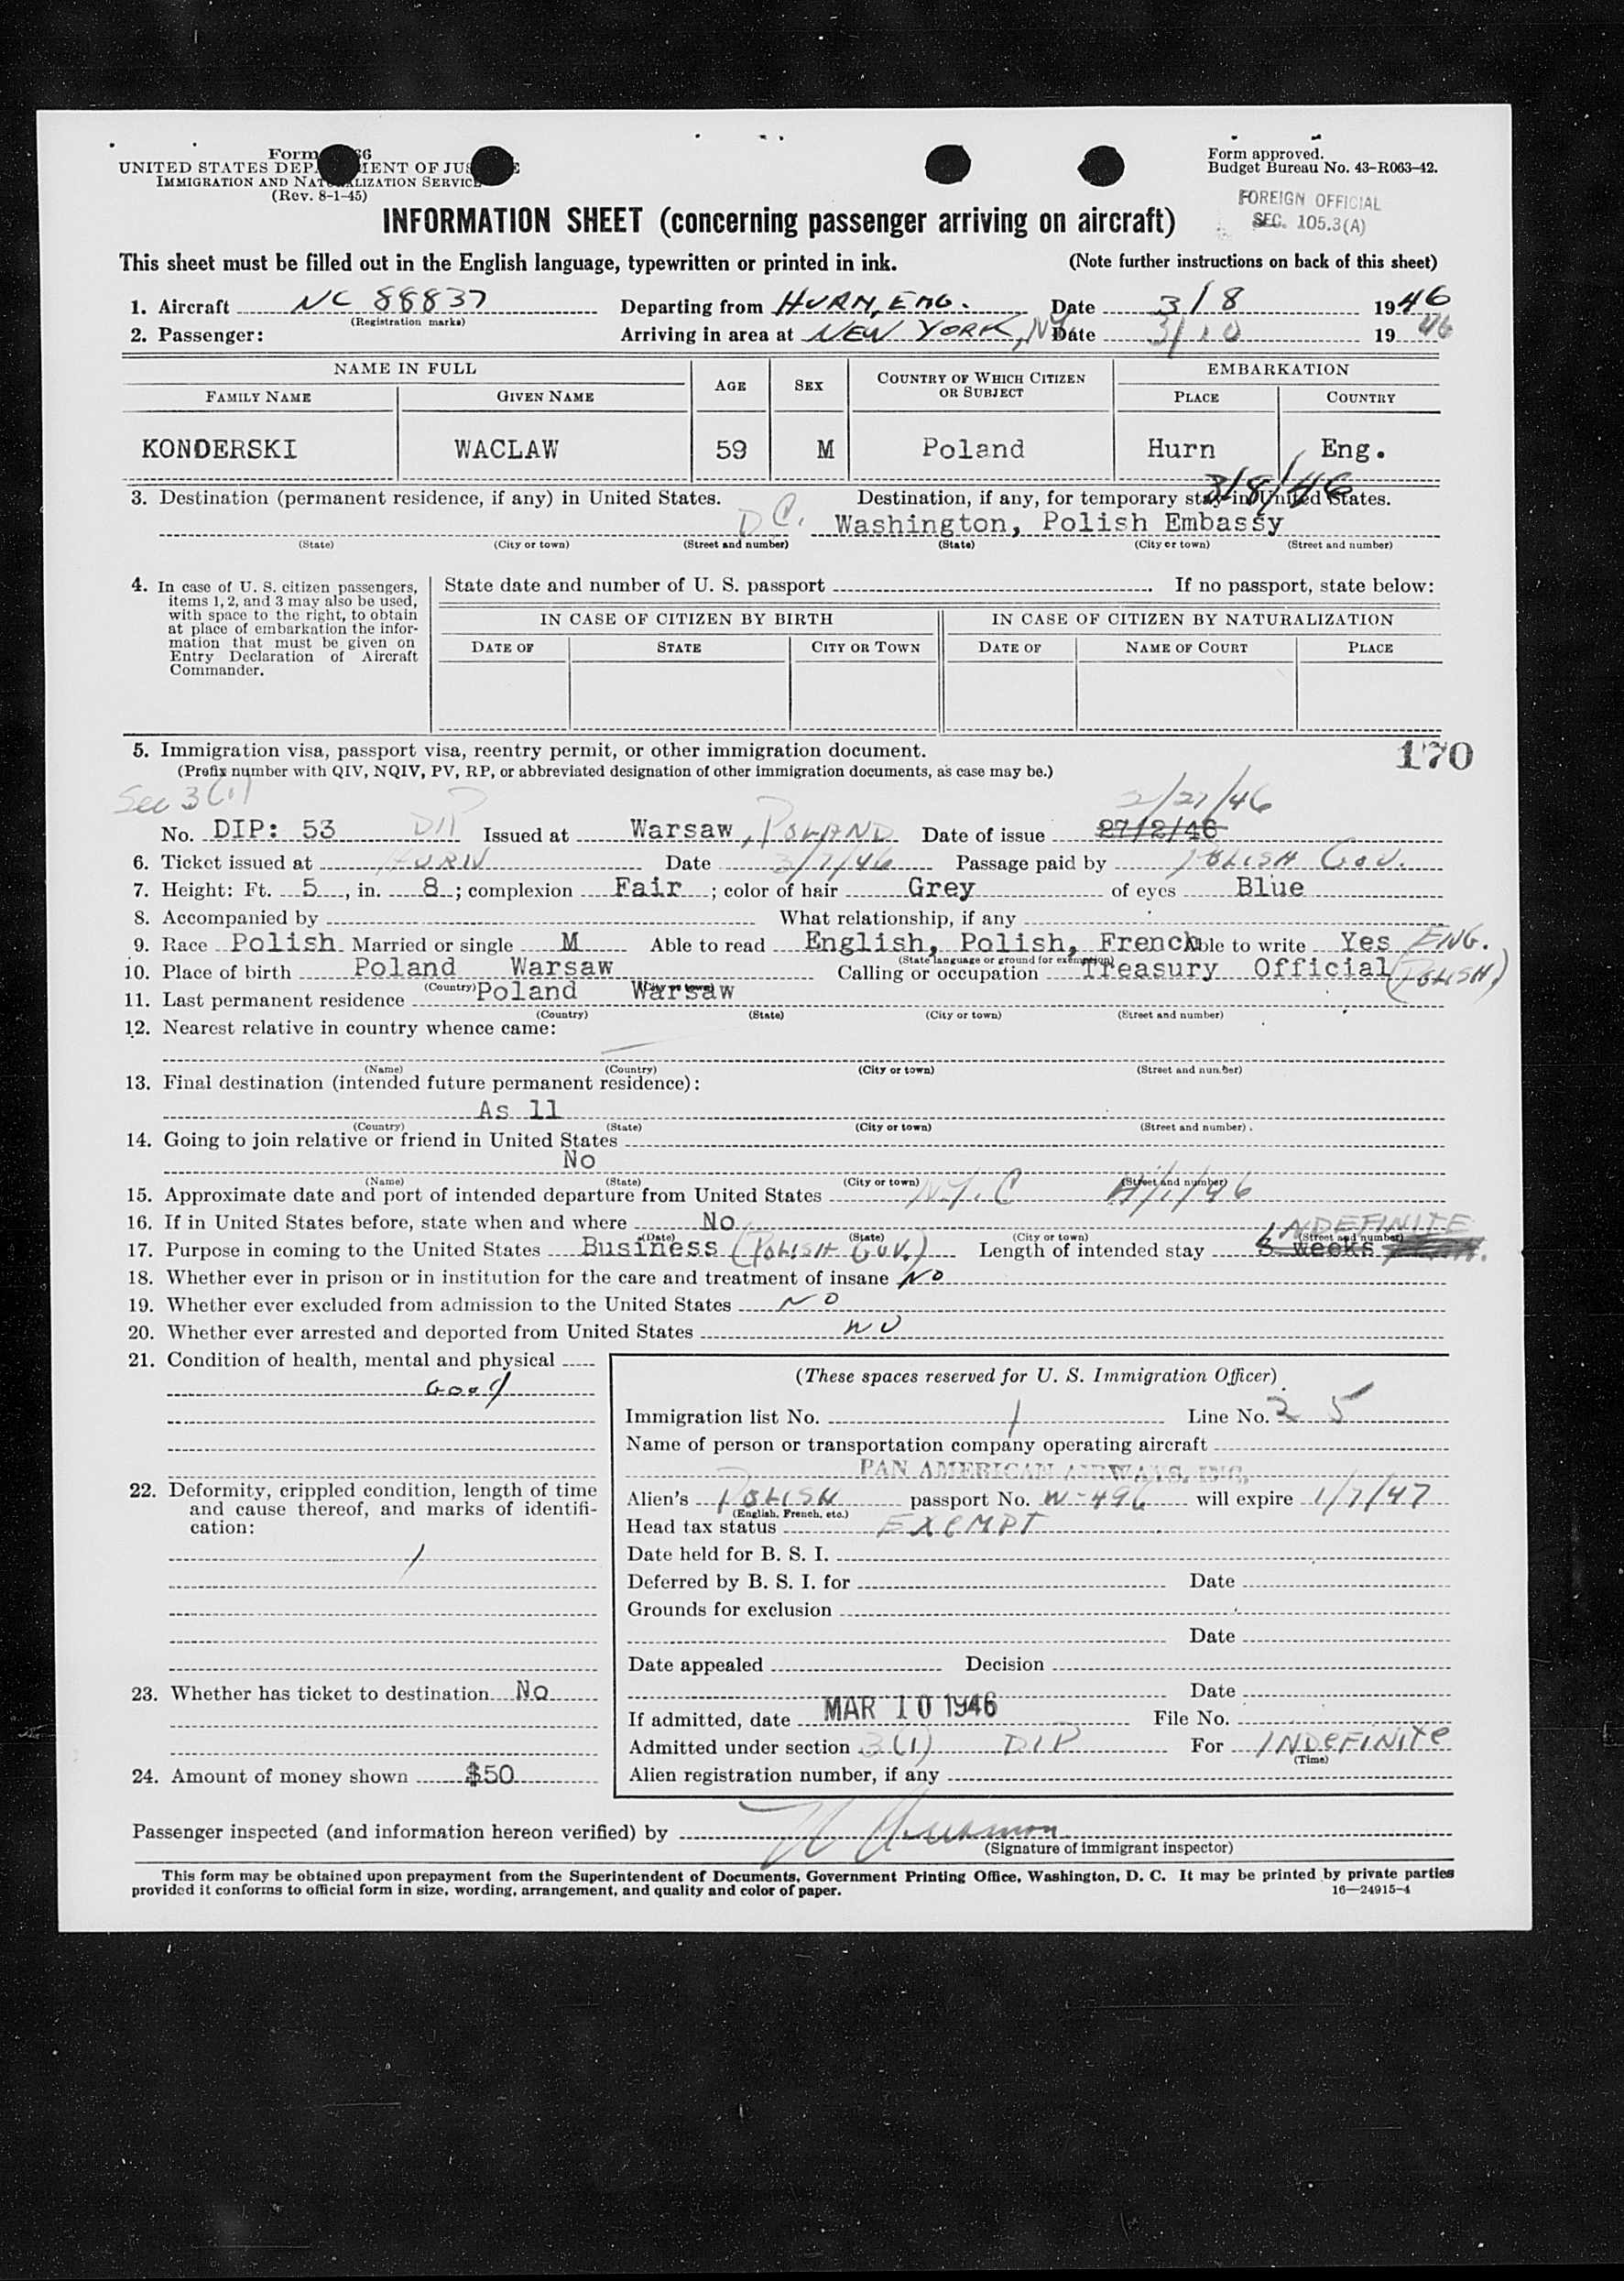 Form 66
UNITED STATES DEP MENT OF JUS E
IMMIGRATION AND NAT LIZATION SERVICE
(Rev. 8-1-45)
Form approved.
Budget Bureau No. 43-R063-42.
FOREIGN OFFICIAL
SEC. 105.3(A)
INFORMATION SHEET (concerning passenger arriving on aircraft)
This sheet must be filled out in the English language, typewritten or printed in ink. (Note further instructions on back of this sheet)
1. Aircraft NC 88837 Departing from HURN, ENG. Date 3/8 1946
(Registration marks)
2. Passenger: Arriving in area at NEW YORK, NY Date 3/10 1946
NAME IN FULL AGE SEX COUNTRY OF WHICH CITIZEN OR SUBJECT EMBARKATION
FAMILY NAME GIVEN NAME PLACE COUNTRY
KONDERSKI WACLAW 59 M Poland Hurn Eng.
3/8/46
3. Destination (permanent residence, if any) in United States. Destination, if any, for temporary stay in United States.
D C. Washington, Polish Embassy
(State) (City or town) (Street and number) (State) (City or town) (Street and number)
4. In case of U. S. citizen passengers,
items 1, 2, and 3 may also be used,
with space to the right, to obtain
at place of embarkation the infor-
mation that must be given on
Entry Declaration of Aircraft
Commander.
State date and number of U. S. passport . If no passport, state below:
IN CASE OF CITIZEN BY BIRTH IN CASE OF CITIZEN BY NATURALIZATION
DATE OF STATE CITY OR TOWN DATE OF NAME OF COURT PLACE
5. Immigration visa, passport visa, reentry permit, or other immigration document. 170
(Prefix number with QIV, NQIV, PV, RP, or abbreviated designation of other immigration documents, as case may be.)
Sec 3(1) 2/27/46
No. DIP: 53 DIP Issued at Warsaw, POLAND Date of issue 27/2/46
6. Ticket issued at HURN Date 3/7/46 Passage paid by POLISH GOV.
7. Height: Ft. 5, in. 8; complexion Fair; color of hair Grey of eyes Blue
8. Accompanied by What relationship, if any
9. Race Polish Married or single M Able to read English, Polish, French Able to write Yes ENG.
(State language or ground for exemption)
10. Place of birth Poland Warsaw Calling or occupation Treasury Official (POLISH)
(Country) (City or town)
11. Last permanent residence Poland Warsaw
(Country) (State) (City or town) (Street and number)
12. Nearest relative in country whence came:
(Name) (Country) (City or town) (Street and number)
13. Final destination (intended future permanent residence):
As 11
(Country) (State) (City or town) (Street and number)
14. Going to join relative or friend in United States
No
(Name) (State) (City or town) (Street and number)
15. Approximate date and port of intended departure from United States N.Y. C 4/1/46
16. If in United States before, state when and where No
(Date) (State) (City or town) (Street and number)
INDEFINITE
17. Purpose in coming to the United States Business (POLISH GOV.) Length of intended stay weeks
18. Whether ever in prison or in institution for the care and treatment of insane NO
19. Whether ever excluded from admission to the United States NO
20. Whether ever arrested and deported from United States NO
21. Condition of health, mental and physical
Good
22. Deformity, crippled condition, length of time
and cause thereof, and marks of identifi-
cation:
/
23. Whether has ticket to destination No
24. Amount of money shown $50
(These spaces reserved for U. S. Immigration Officer)
Immigration list No. 1 Line No. 25
Name of person or transportation company operating aircraft
PAN AMERICAN AIRWAYS, INC.
Alien's POLISH passport No. N-496 will expire 1/7/47
(English, French, etc.)
Head tax status EXEMPT
Date held for B. S. I.
Deferred by B. S. I. for Date
Grounds for exclusion
Date
Date appealed Decision
Date
If admitted, date MAR 10 1946 File No.
Admitted under section 3(1) DIP For INDEFINITE
(Time)
Alien registration number, if any
Passenger inspected (and information hereon verified) by
(Signature of immigrant inspector)
This form may be obtained upon prepayment from the Superintendent of Documents, Government Printing Office, Washington, D. C. It may be printed by private parties
provided it conforms to official form in size, wording, arrangement, and quality and color of paper. 16—24915-4